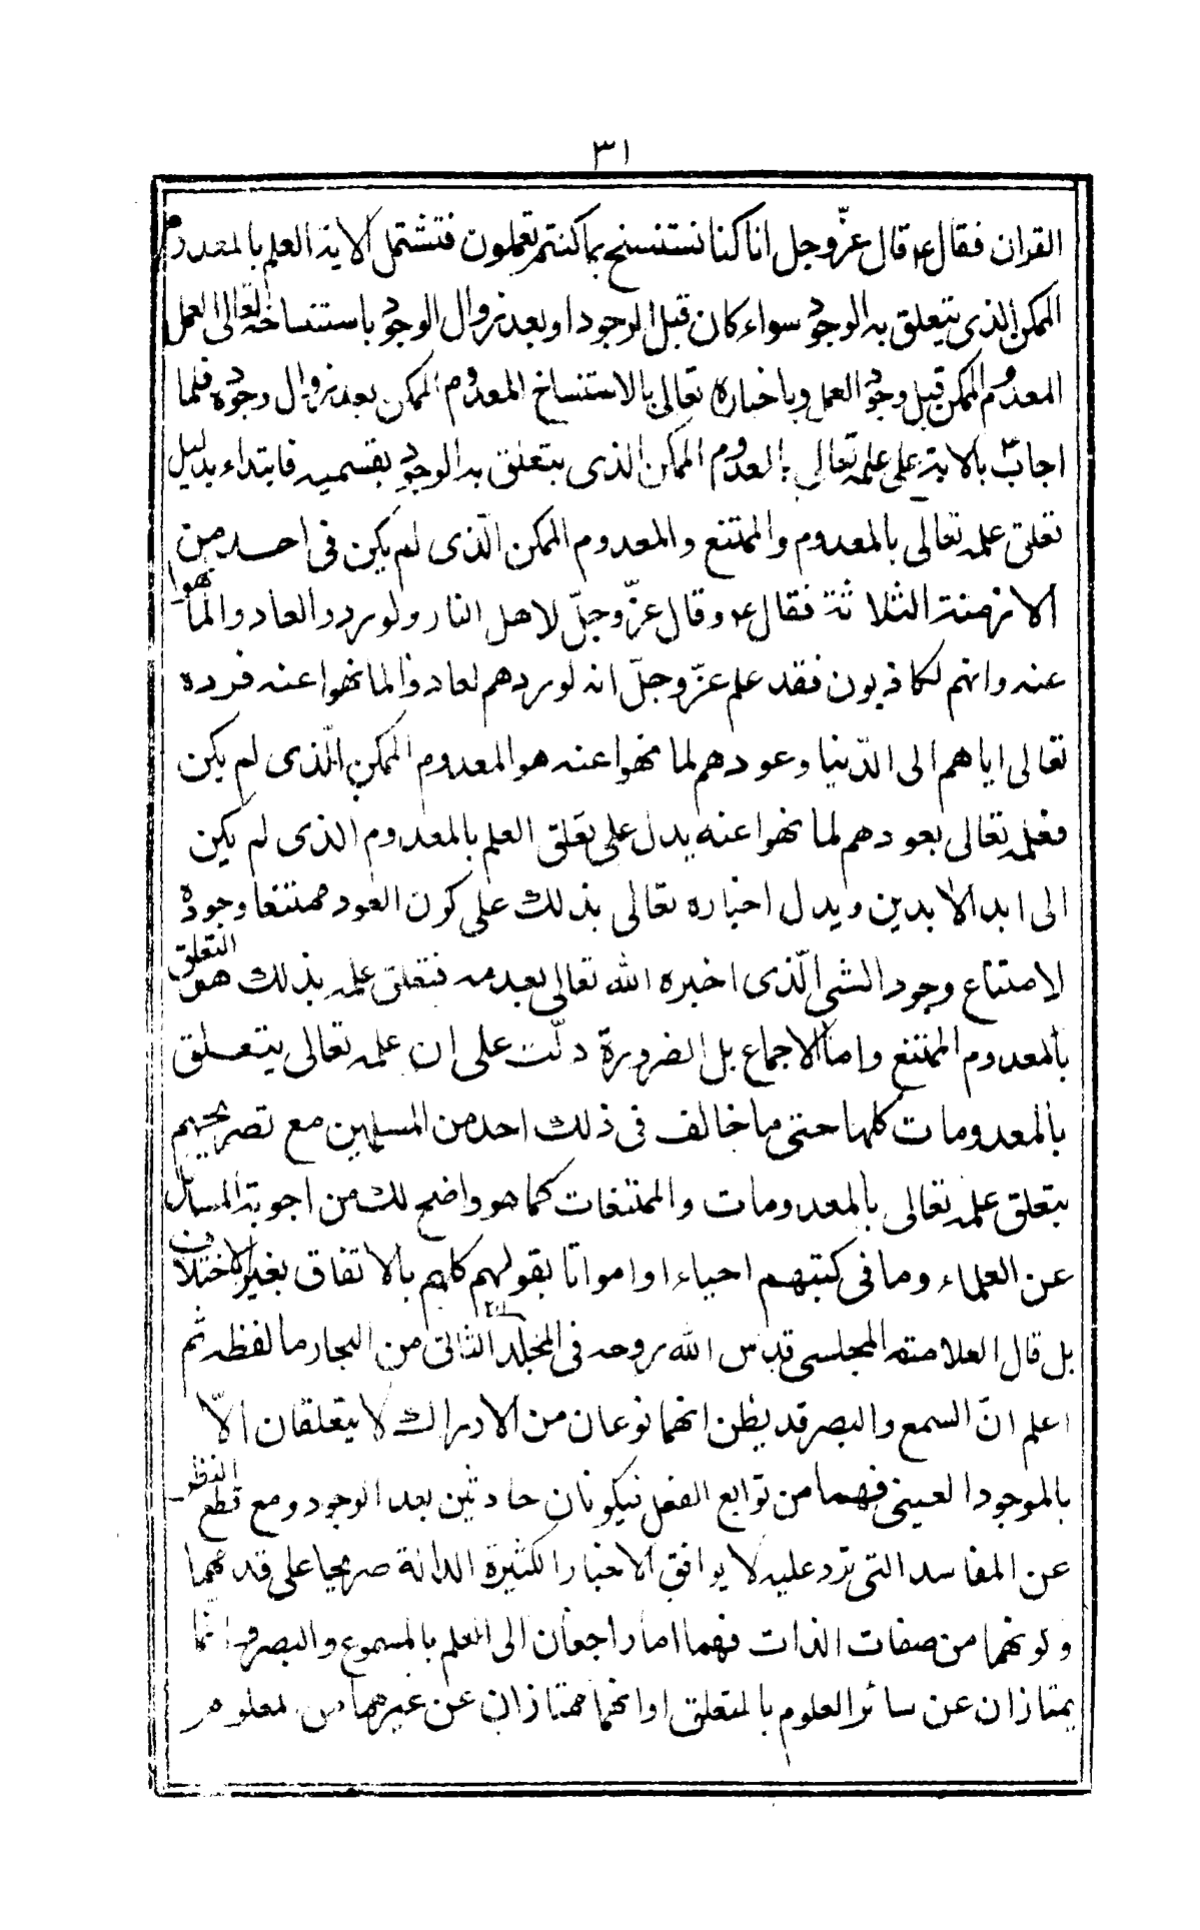 ٣١
القران فقال ع قال عزّ وجل انا كنا نستنسخ بما كنتم تعملون فتشتمل الاية العلم بالمعدوم
الممكن الذى يتعلق به الوجود سواء كان قبل الوجود او بعد زوال الوجود باستنساخه تعالى العمل
المعدوم الممكن قبل وجود العمل وباخباره تعالى بالاستنساخ المعدوم الممكن بعد زوال وجوده فلما
اجاب بالاية على علمه تعالى بالمعدوم الممكن الذى يتعلق به الوجود بقسميه فابتداء بدليل
تعلق علمه تعالى بالمعدوم والممتنع والمعدوم الممكن الّذى لم يكن فى احد من
الازمنة الثلاثة فقال ع وقال عزّ وجلّ لاهل النار ولو ردو العادوا لما نهوا
عنه وانهم لكاذبون فقد علم عزّ وجلّ انه لو ردهم لعادوا لما نهوا عنه فرده
تعالى اياهم الى الدّنيا وعودهم لما نهوا عنه هو المعدوم الممكن الّذى لم يكن
فعلمه تعالى بعودهم لما نهوا عنه يدل على تعلق العلم بالمعدوم الذى لم يكن
الى ابد الابدين ويدل اخباره تعالى بذلك على كون العود ممتنعا وجوده
لامتناع وجود الشى الّذى اخبره الله تعالى بعدمه فتعلق علمه بذلك هو التعلق
بالمعدوم الممتنع واما الاجماع بل الضرورة دلّت على ان علمه تعالى يتعلق
بالمعدومات كلها حتى ما خالف فى ذلك احد من المسلمين مع تصريحهم
بتعلق علمه تعالى بالمعدومات والممتنعات كما هو واضح لك من اجوبة المسائل
عن العلماء وما فى كتبهم احياء او امواتا بقولهم كلهم بالاتفاق بغير الاختلاف
بل قال العلامة المجلسى قدس الله روحه فى المجلد الثانى من البحار ما لفظه ثم
اعلم انّ السمع والبصر قد يظن انهما نوعان من الادراك لا يتعلقان الّا
بالموجود العينى فهما من توابع الفعل فيكونان حادثين بعد الوجود ومع قطع النظر
عن المفاسد التى ترد عليه لا يوافق الاخبار الكثيرة الدالة صريحا على قدمهما
وكونهما من صفات الذات فهما اما راجعان الى العلم بالمسموع والبصر وانما
يمتازان عن سائر العلوم بالمتعلق او انهما ممتازان عن غيرهما من معلوم